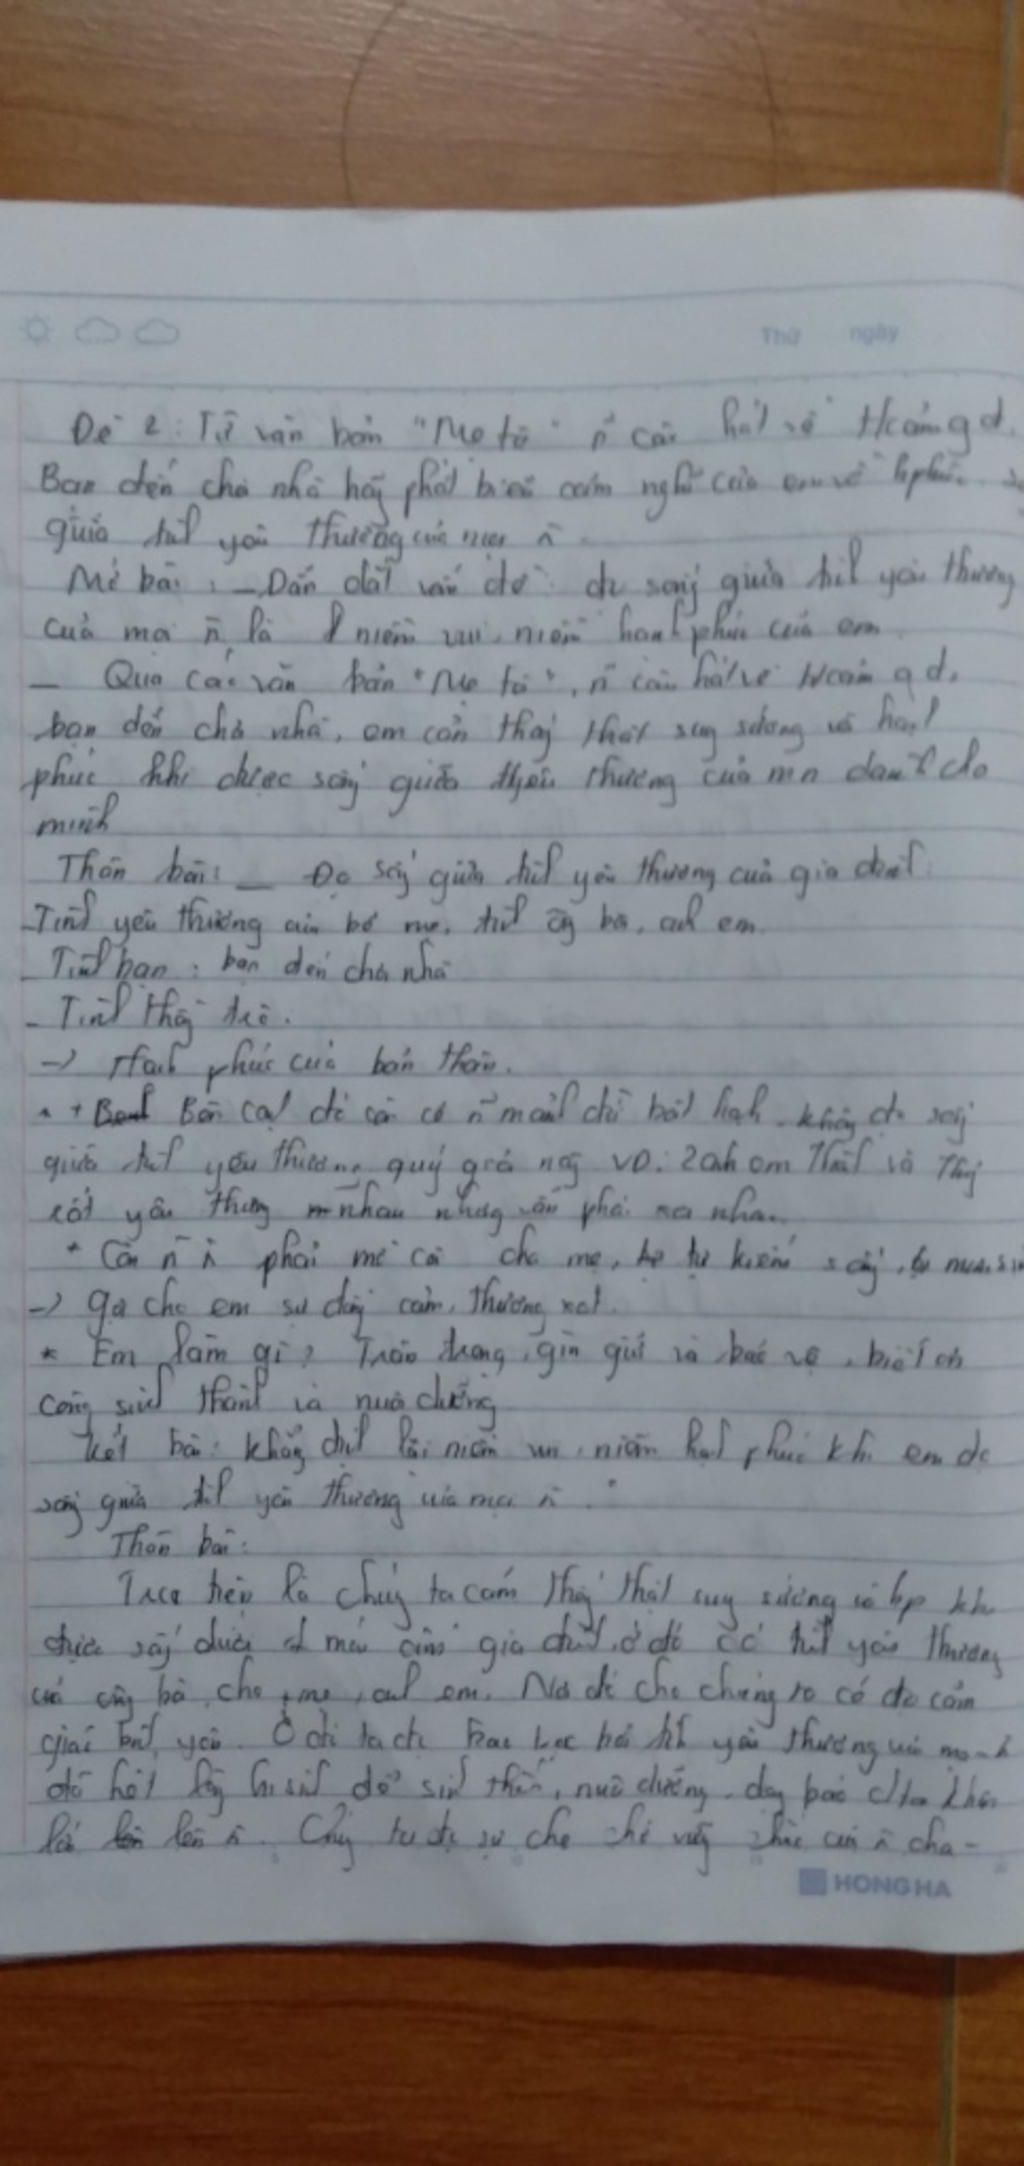 Thứ ngày
Đề 2: Từ văn bản "Mẹ tôi" ñ câu hát về t/cảm g đ.
Bạn đến chơi nhà hãy phát biểu cảm nghĩ của em về h phúc
giữa yêu thương của mọi ñ
Mở bài: - Dẫn dắt vấn đề: đc sống giữa yêu thương
của mọi ñ là 1 niềm vui, niềm hạnh phúc của em
- Qua các văn bản "Mẹ tôi", ñ câu hát về t/cảm g đ,
bạn đến chơi nhà, em cảm thấy thật sung sướng và hạnh
phúc khi được sống giữa thương của mn dành cho
mình
Thân bài: - Đc sống giữa yêu thương của gia đình
- Tình yêu thương của bố mẹ, ông bà, anh em
- Tình bạn: bạn đến chơi nhà
- Tình thầy trò.
-> Hạnh phúc của bản thân.
+ Bên cạnh đó còn có ñ mảnh đời bất hạnh không đc sống
giữa yêu thương quý giá này VD: 2 anh em Thành và Thủy
rất yêu thương nhau nhưng vẫn phải xa nhau
* Còn ñ phải mồ côi cha mẹ, tự kiếm sống,
-> gợi cho em sự đồng cảm, thương xót.
* Em làm gì? Trân trọng, gìn giữ và bảo vệ, biết ơn
công sinh thành và nuôi dưỡng
Kết bài: Khẳng định lại niềm vui, niềm hạnh phúc khi em đc
sống giữa yêu thương của mọi ñ.
Thân bài:
Trước tiên là chúng ta cảm thấy thật sung sướng và hp khi
được sống dưới 1 mái ấm gia đình, ở đó có yêu thương
của ông bà, cha, mẹ, anh em. Nơi đó cho chúng ta có đc cảm
giác bình yên. Ở đó ta đc bao bọc bởi yêu thương của
đã hết lòng hi sinh để sinh thành, nuôi dưỡng, dạy bảo
lớn lên. Chúng ta đc sự che chở vững chắc của ñ cha -
HONG HA